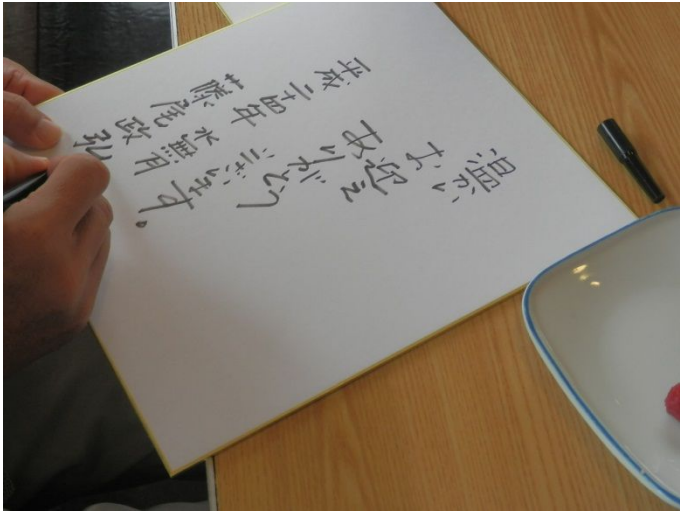 温かい
お迎え
ありがとう
ございます。
平成二十四年 水無月
藤尾政弘